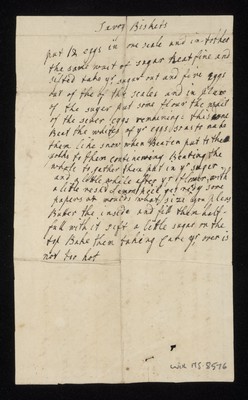 Savoy Biskets
put 12 eggs in one scale and in tother
the same wait of sugar beat fine and
sifted take yr sugar out and five Eggs
out of the scales and in place
of the sugar put some flour the wait
of the seven eggs remaining: this
Beat the whites of yr eggs so as to make
them like snow when Beaten put to them
yolks to them continewing Beating the
whole to gather then put in yr sugar
and a little while after yr flower with
a little lemon peel get redy some
papers or moulds what sizes you pleas
Buter the inside and fill them half-
full with it sift a little sugar on the
top Bake them taking Care yr oven is
not too hot
MS.8576